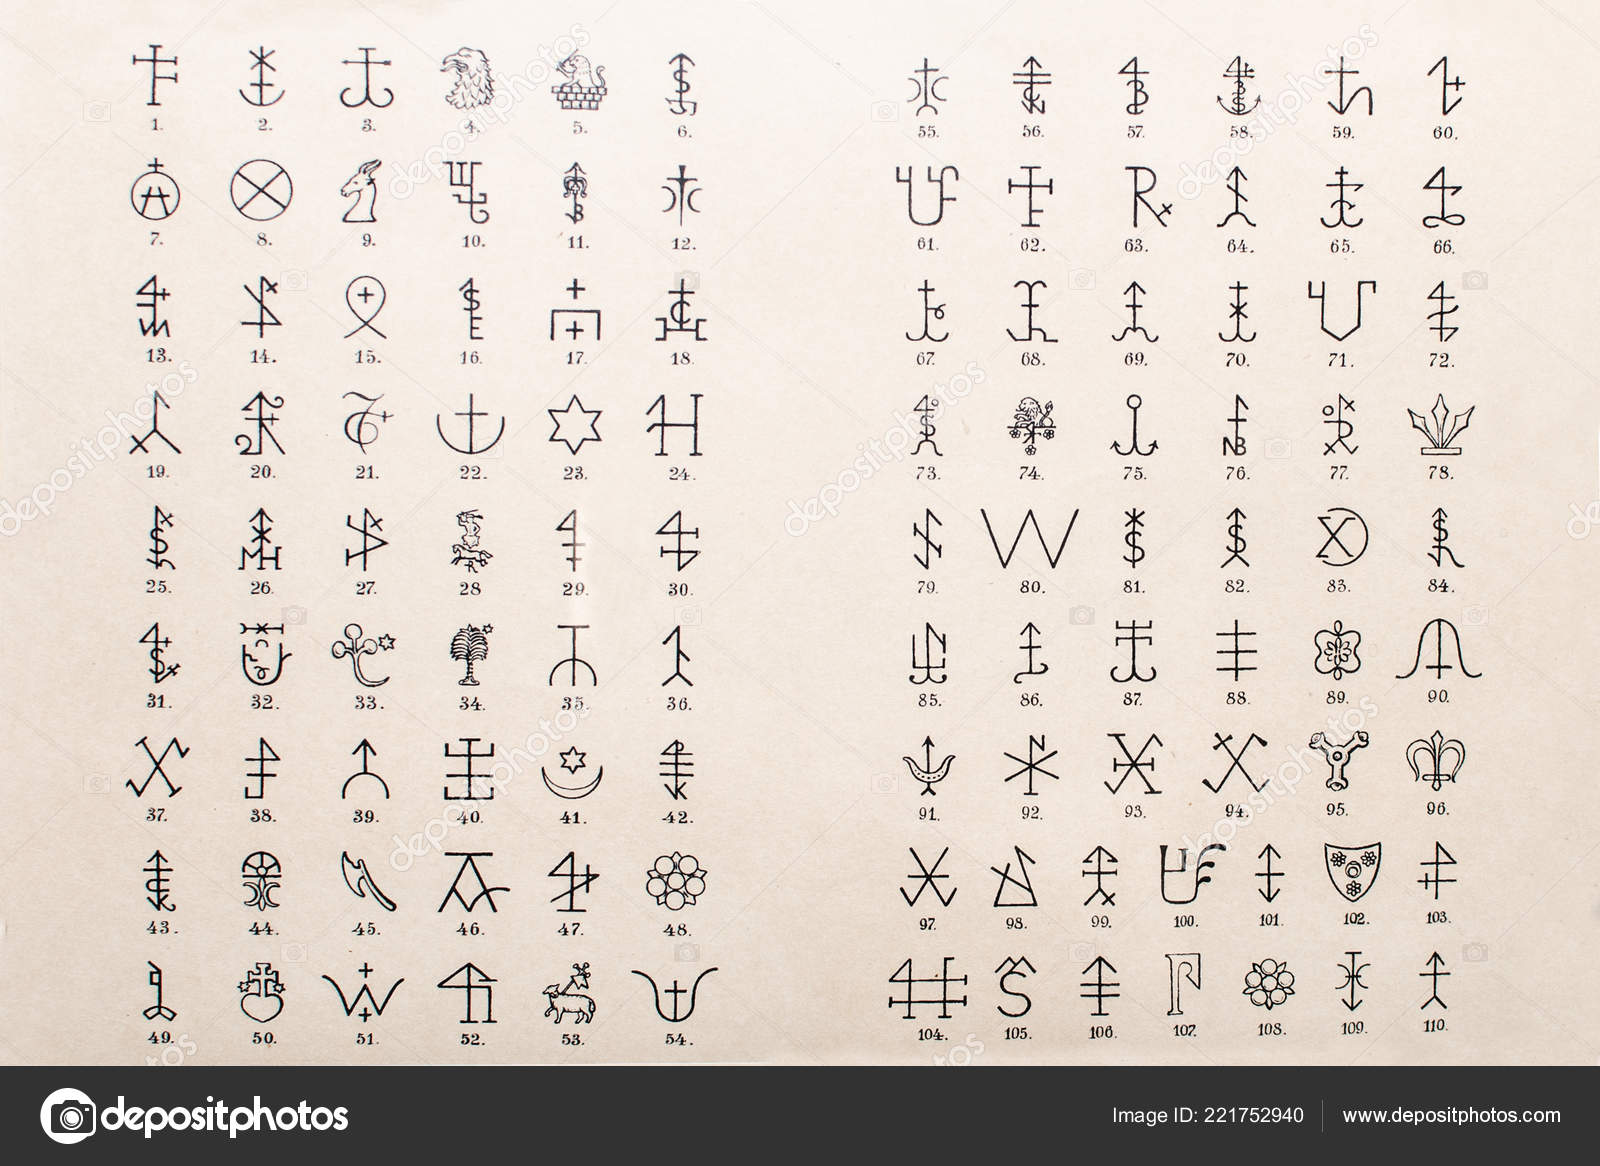 1. 2. 3. 4. 5. 6.
7. 8. 9. 10. 11. 12.
13. 14. 15. 16. 17. 18.
19. 20. 21. 22. 23. 24.
25. 26. 27. 28 29. 30.
31. 32. 33. 34. 35. 36.
37. 38. 39. 40. 41. 42.
43. 44. 45. 46. 47. 48.
49. 50. 51. 52. 53. 54.
55. 56. 57. 58. 59. 60.
61. 62. 63. 64. 65. 66.
67. 68. 69. 70. 71. 72.
73. 74. 75. 76. 77. 78.
79. 80. 81. 82. 83. 84.
85. 86. 87. 88. 89. 90.
91. 92. 93. 94. 95. 96.
97. 98. 99. 100. 101. 102. 103.
104. 105. 106. 107. 108. 109. 110.
depositphotos
Image ID: 221752940 www.depositphotos.com